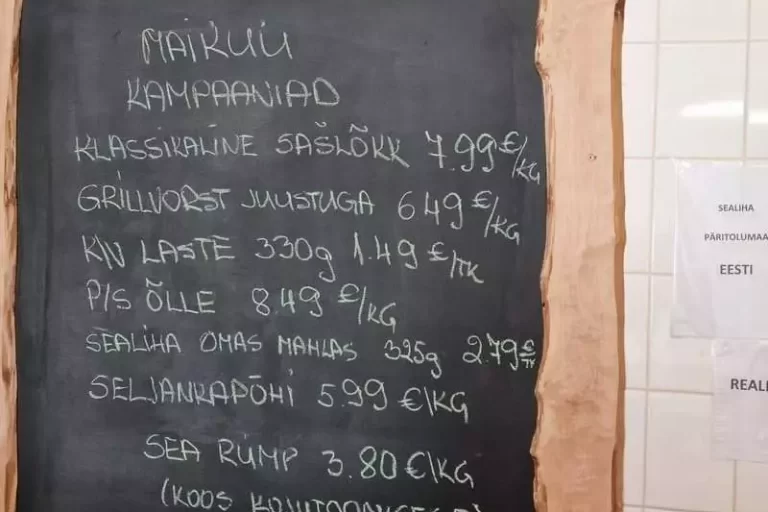 MAIKUU
KAMPAANIAD
KLASSIKALINE SAŠLÕKK 7.99 €/KG
GRILLVORST JUUSTUGA 6.49 €/KG
K/V LASTE 330g 1.49 €/TK
P/S ÕLLE 8.49 €/KG
SEALIHA OMAS MAHLAS 325g 2.79 €/TK
SELJANKAPÕHI 5.99 €/KG
SEA RÜMP 3.80 €/KG
(KOOS
SEALIHA
PÄRITOLUMAA
EESTI